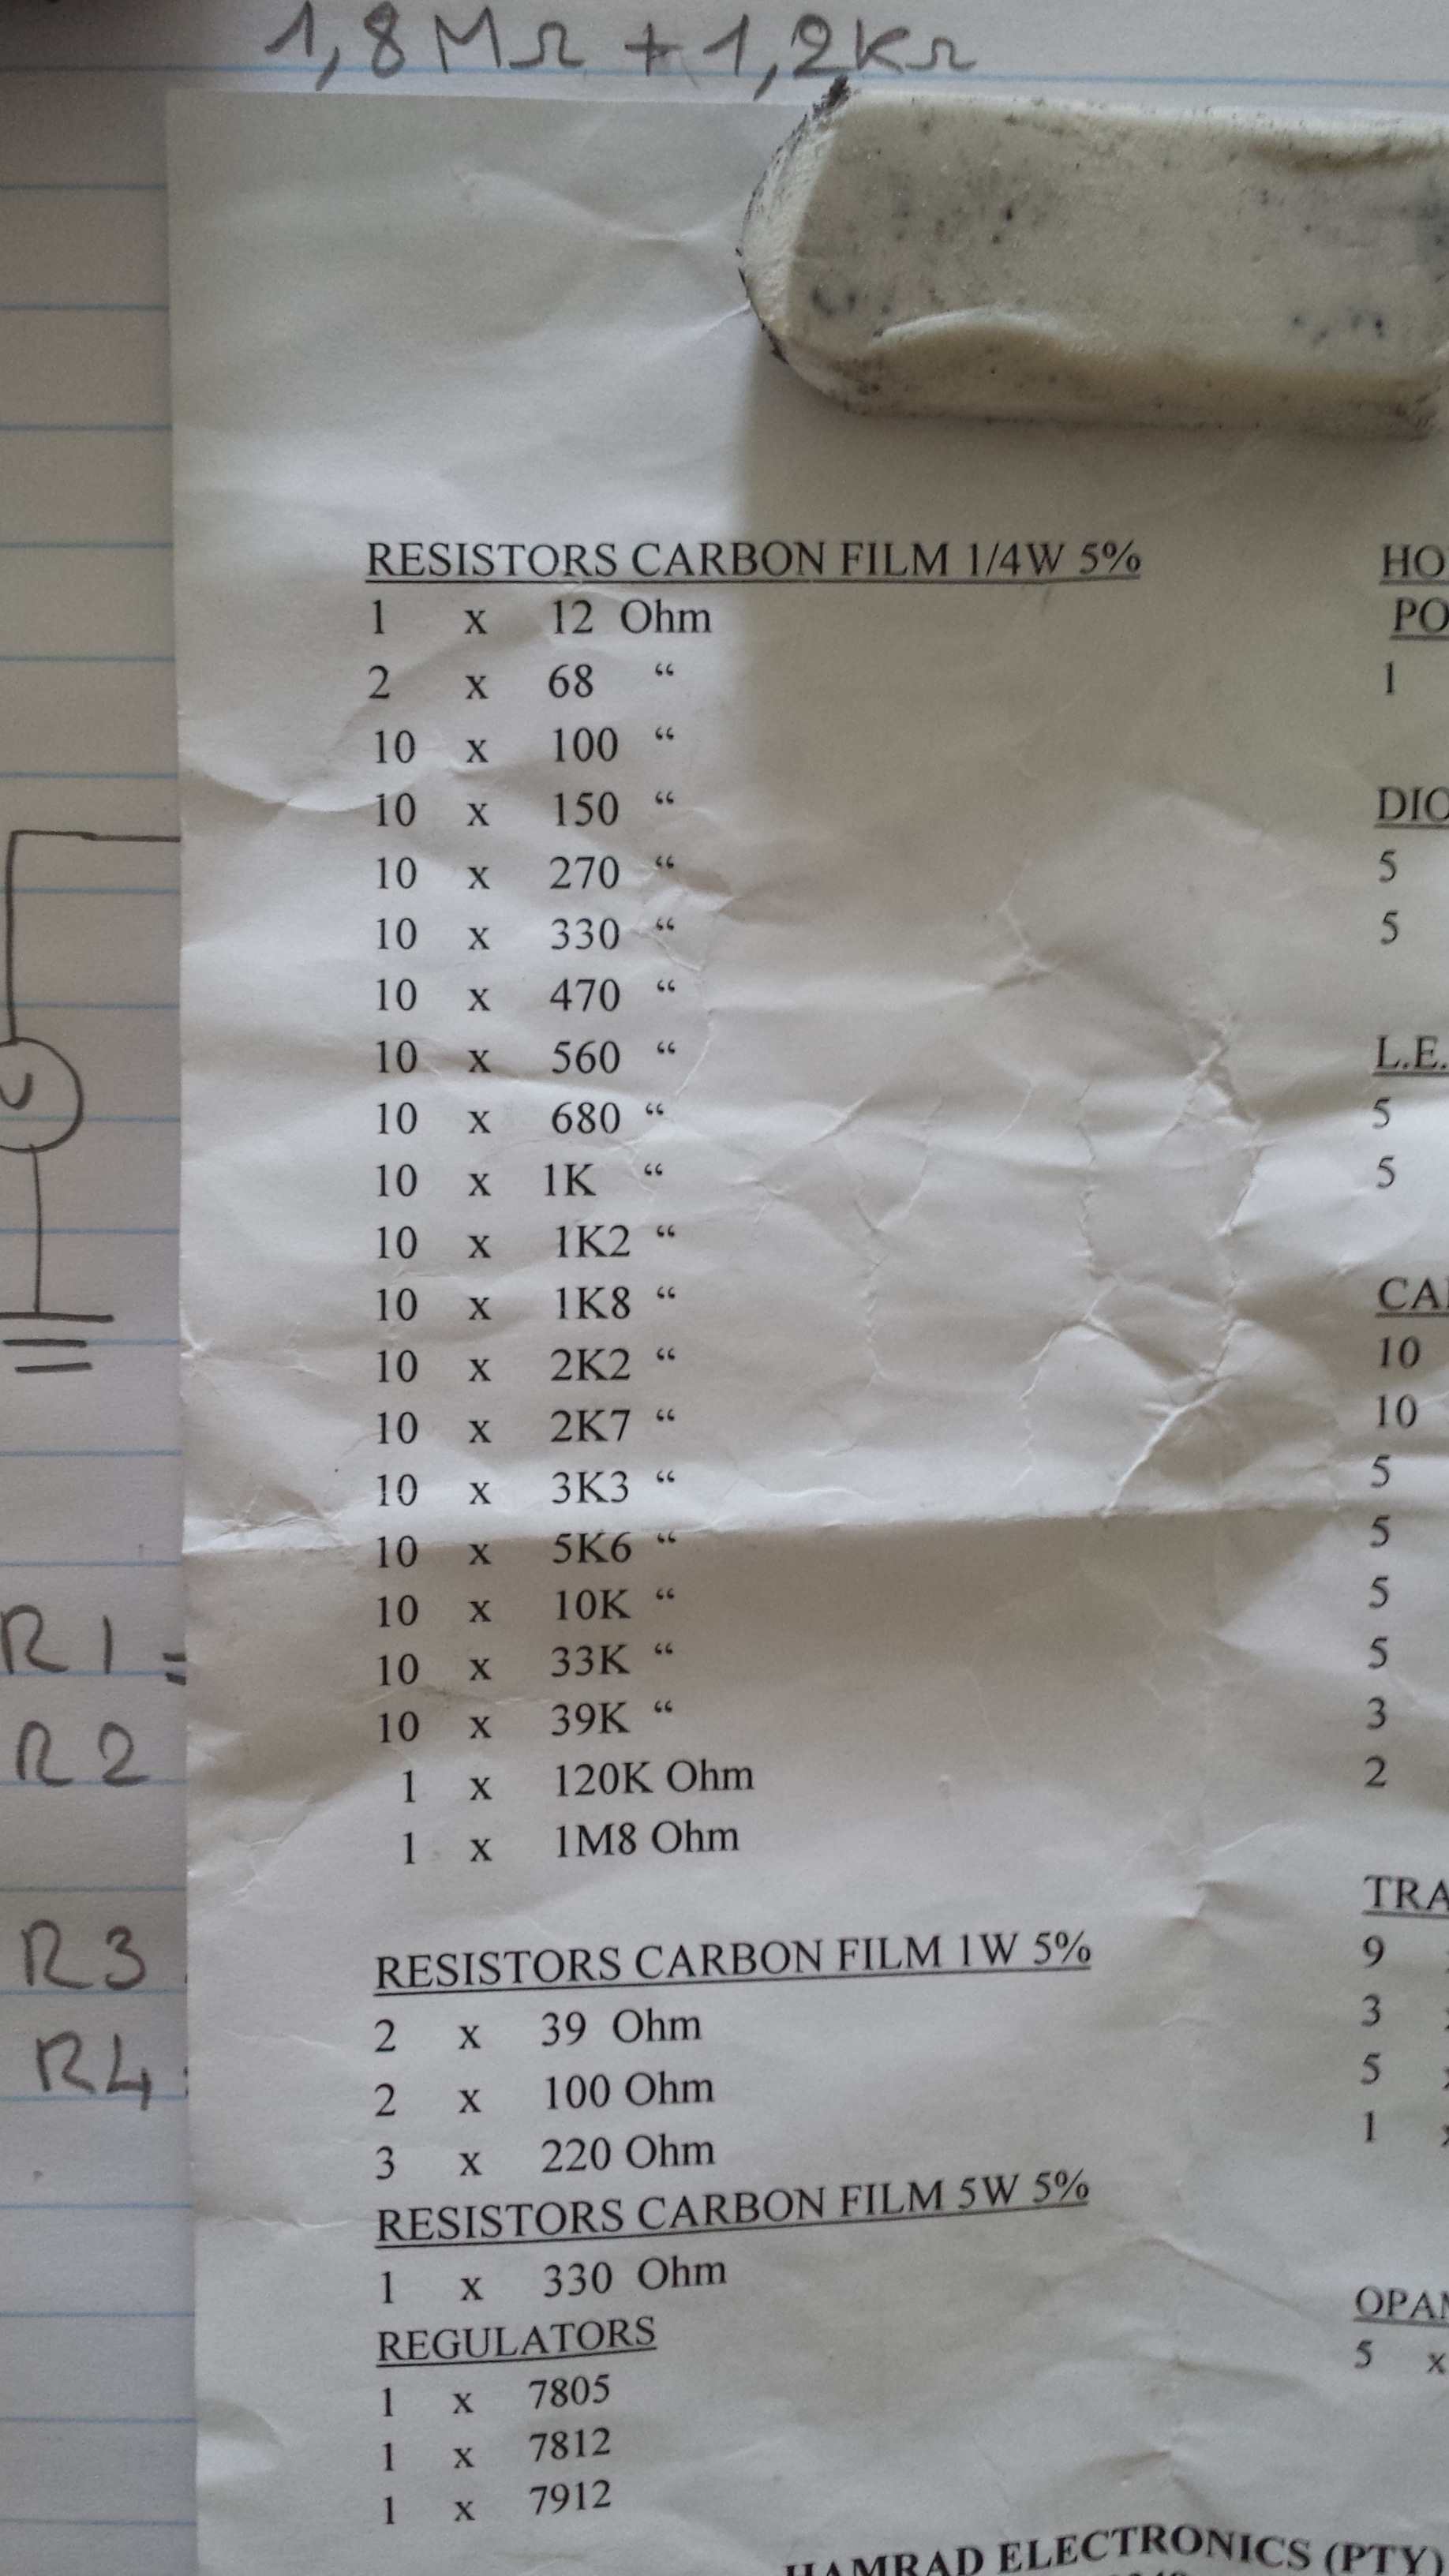 1,8MΩ + 1,2KΩ
RESISTORS CARBON FILM 1/4W 5%
1 x 12 Ohm
2 x 68 “
10 x 100 “
10 x 150 “
10 x 270 “
10 x 330 “
10 x 470 “
10 x 560 “
10 x 680 “
10 x 1K “
10 x 1K2 “
10 x 1K8 “
10 x 2K2 “
10 x 2K7 “
10 x 3K3 “
10 x 5K6 “
10 x 10K “
10 x 33K “
10 x 39K “
1 x 120K Ohm
1 x 1M8 Ohm
RESISTORS CARBON FILM 1W 5%
2 x 39 Ohm
2 x 100 Ohm
3 x 220 Ohm
RESISTORS CARBON FILM 5W 5%
1 x 330 Ohm
REGULATORS
1 x 7805
1 x 7812
1 x 7912
HO
PO
1
DIO
5
5
L.E.
5
5
CA
10
10
5
5
5
5
3
2
TRA
9
3
5
1
OPA
5 x
HAMRAD ELECTRONICS (PTY)
R1 =
R2
R3
R4